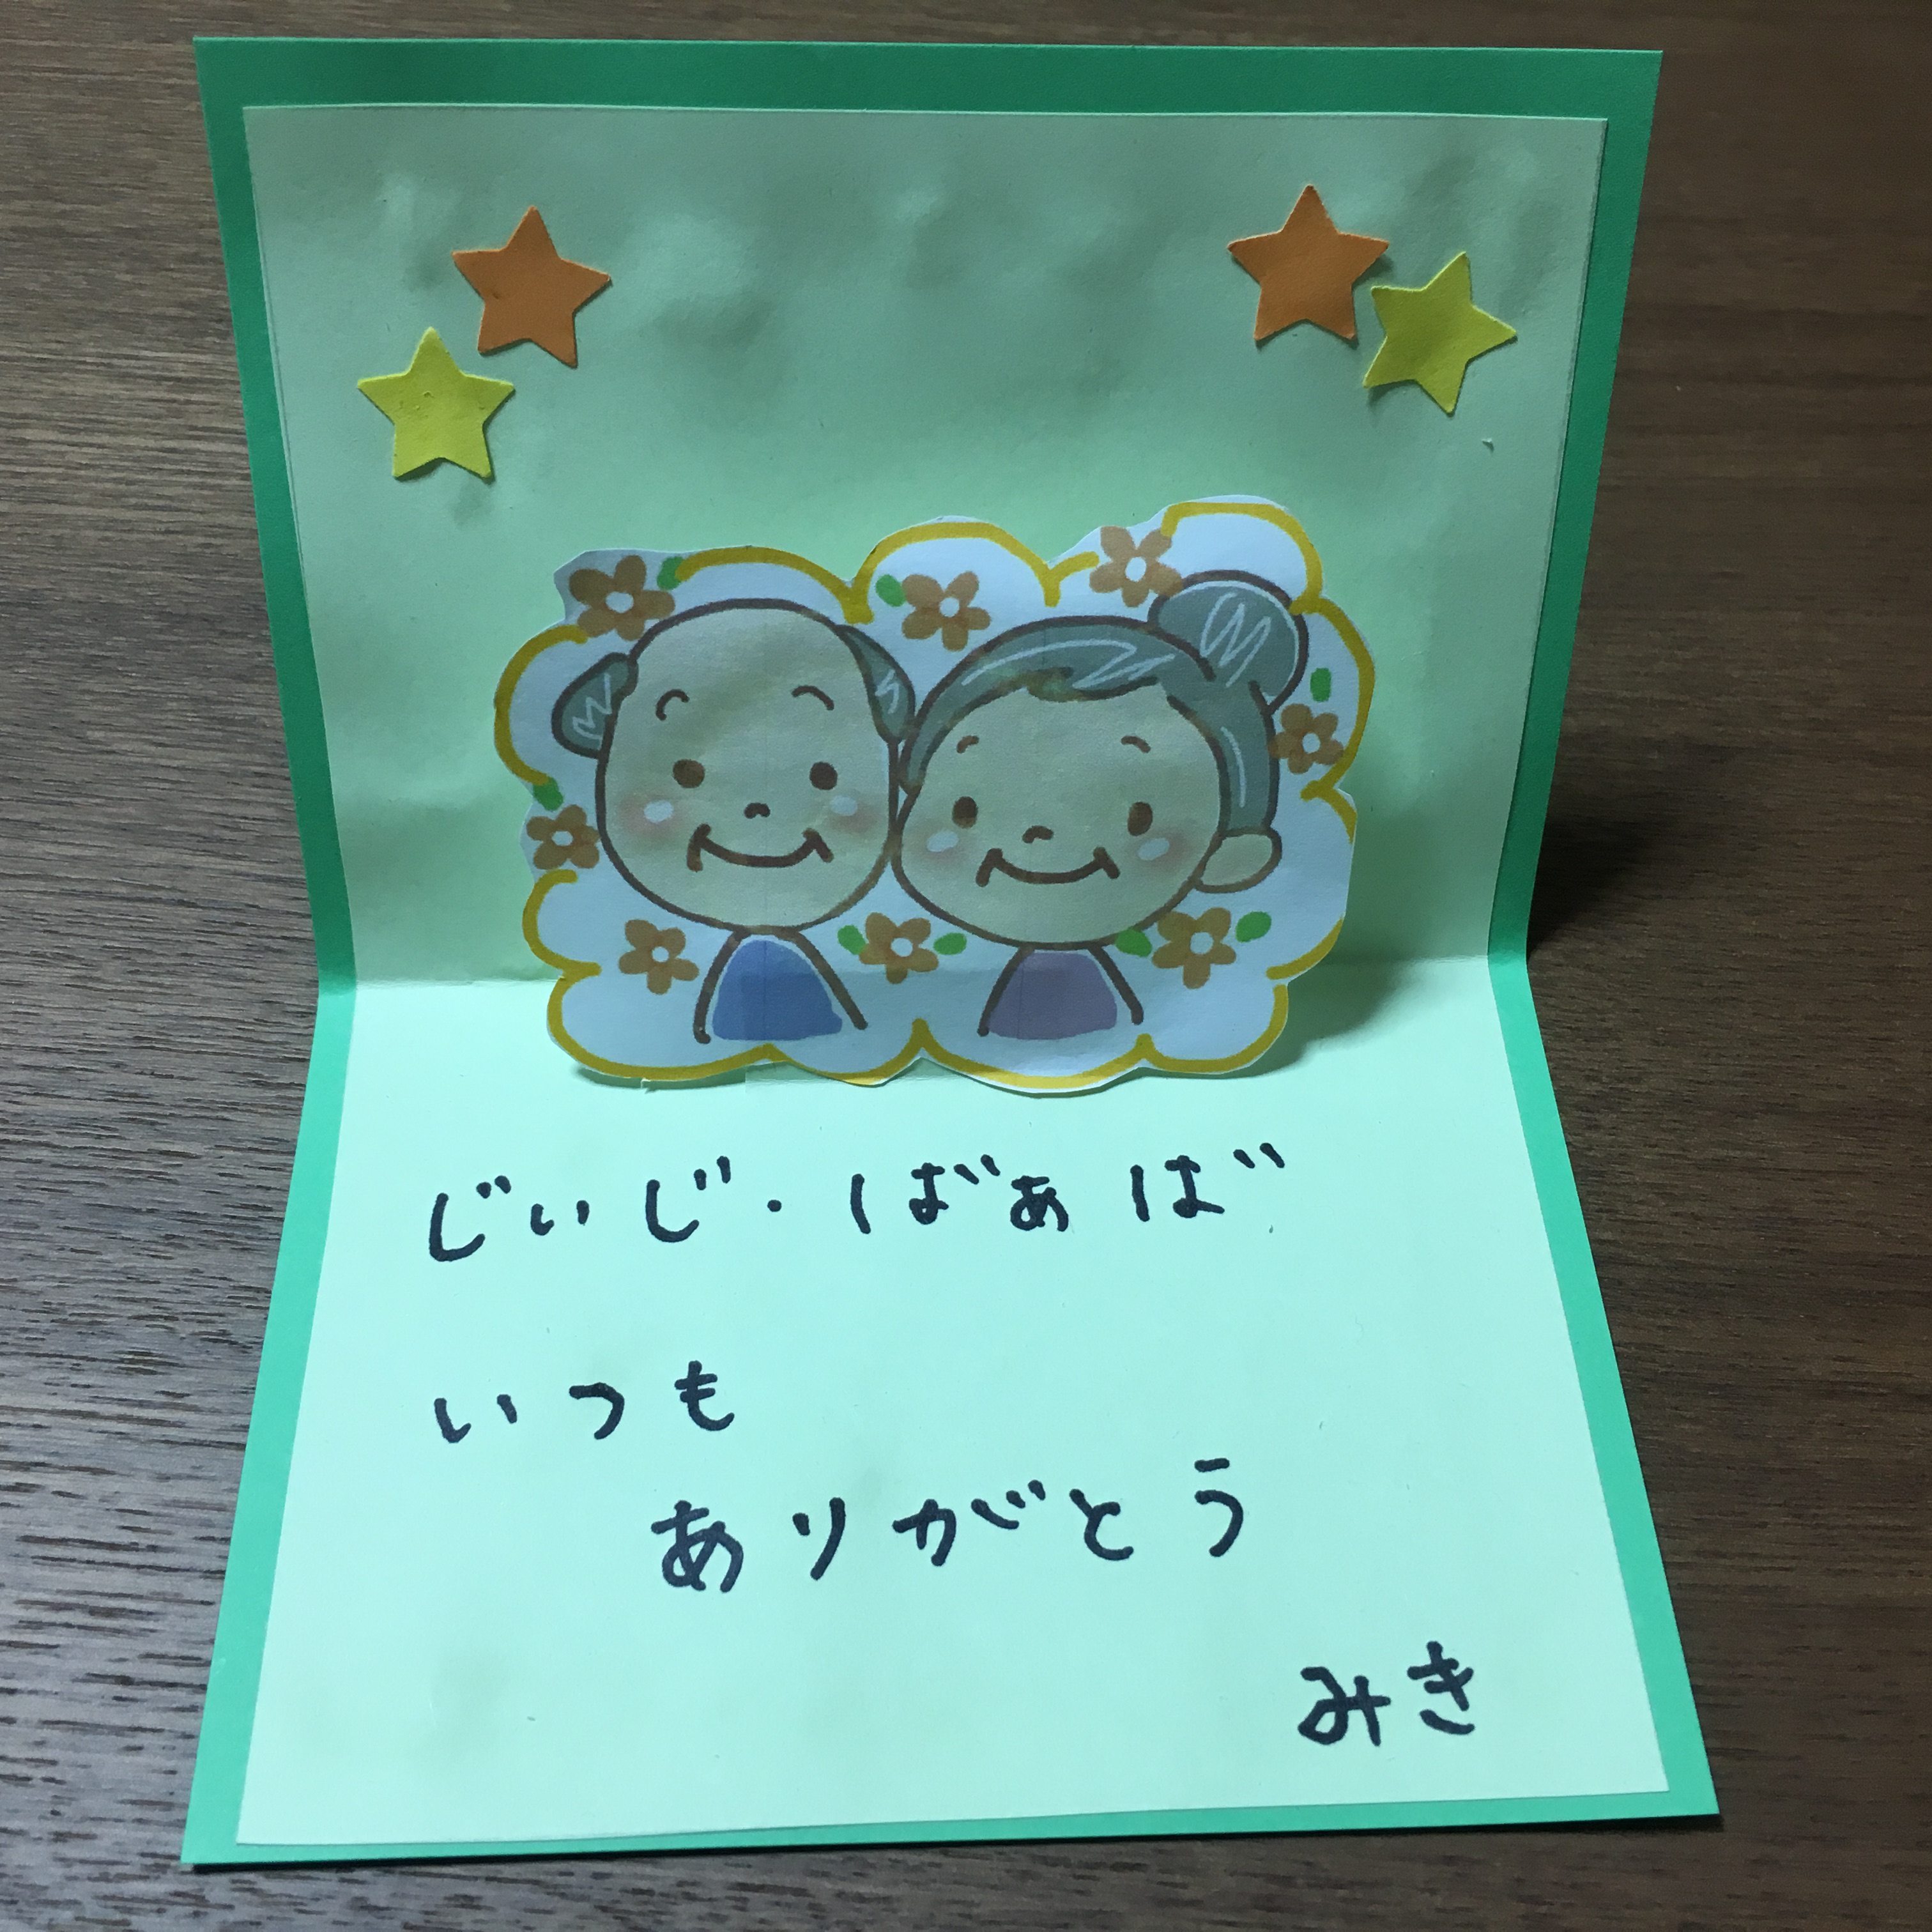 じぃじ・ばぁば
いつも
ありがとう
みき